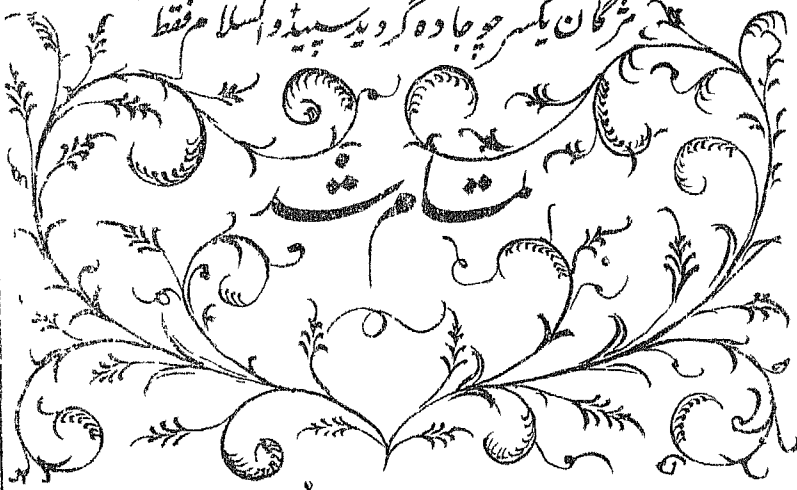 مژگان یکسر چو جاده گردید سپید والسلام فقط
تمام شد